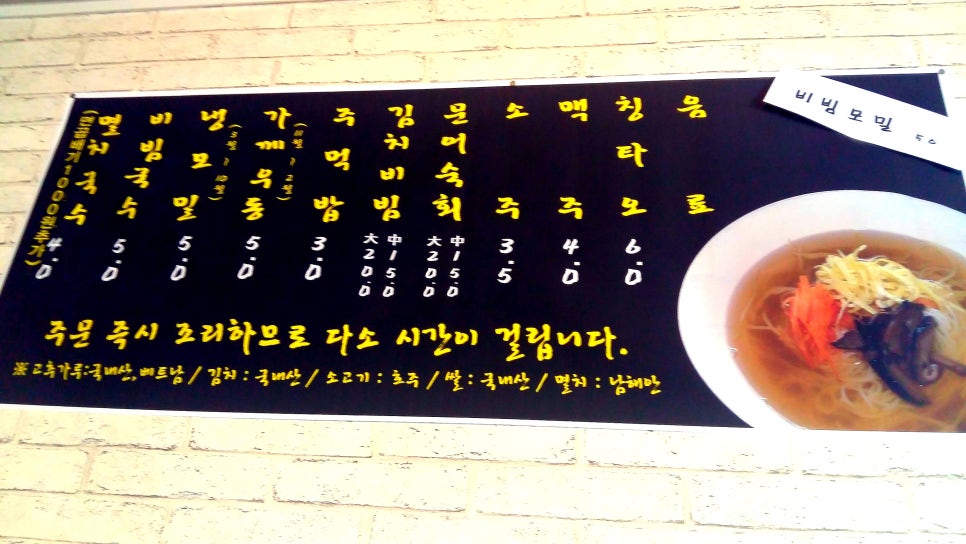 (면곱배기1000원추가)
멸치국수
4.0
비빔국수
5.0
냉모밀
(3월~10월)
5.0
가께우동
5.0
주먹밥
3.0
김치비빔
中15.0
大20.0
문어숙회
中15.0
大20.0
소주
3.5
맥주
4.0
칭타오
6.0
음료
비빔모밀 5.0
주문 즉시 조리하므로 다소 시간이 걸립니다.
※고추가루:국내산,베트남 / 김치 : 국내산 / 소고기 : 호주 / 쌀 : 국내산 / 멸치 : 남해안